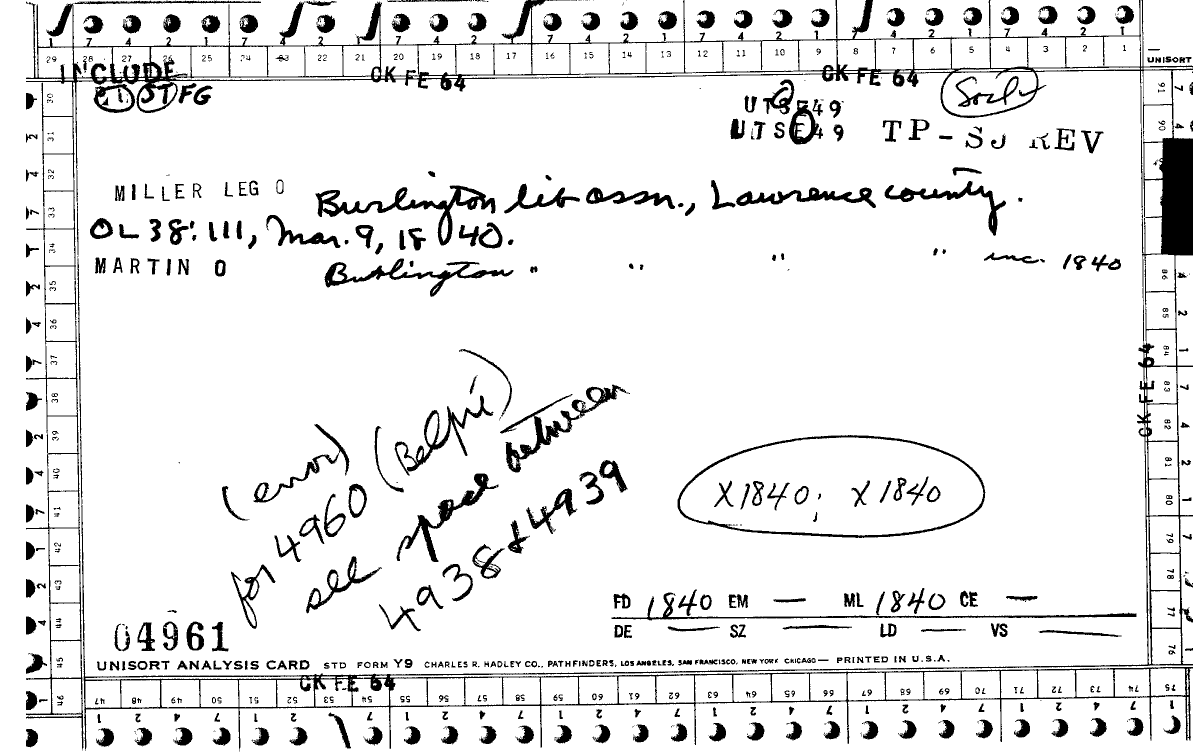 7 4 2 1 7 4 2 1 7 4 2 1 7 4 2 1 7 4 2 1 7 4 2 1
29 28 27 26 25 24 23 22 21 20 19 18 17 16 15 14 13 12 11 10 9 8 7 6 5 4 3 2 1
UNISORT
INCLUDE
CK FE 64
CK FE 64
ST FG
Soc'l
UTSE49
UTSE49 TP-SJ REV
MILLER LEG O Burlington lib assn., Lawrence county.
OL 38:111, Mar. 9, 1840.
MARTIN O Burlington " " " " inc. 1840
CK FE 64
(error)
for 4960 (Belpré)
see space between
4938 & 4939
X1840; X1840
FD 1840 EM — ML 1840 CE —
DE — SZ — LD — VS —
04961
UNISORT ANALYSIS CARD STD FORM Y9 CHARLES R. HADLEY CO., PATHFINDERS, LOS ANGELES, SAN FRANCISCO, NEW YORK CHICAGO — PRINTED IN U.S.A.
CK FE 64
47 48 49 50 51 52 53 54 55 56 57 58 59 60 61 62 63 64 65 66 67 68 69 70 71 72 73 74 75